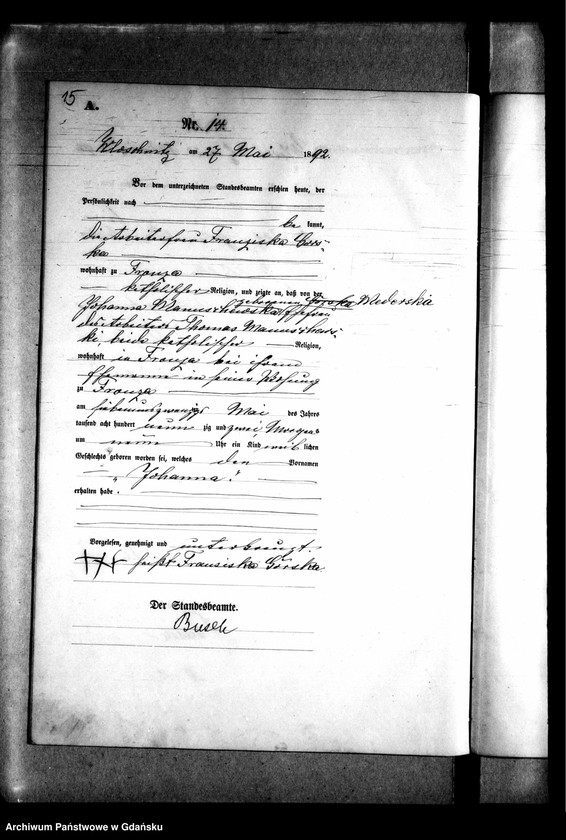 15
A.
Nr. 14.
am 27 Mai 1892.
Vor dem unterzeichneten Standesbeamten erschien heute, der
Persönlichkeit nach
be kannt,
die Arbeiterfrau Franziska Górs-
ka
wohnhaft zu Franza
katholischer Religion, und zeigte an, daß von der
geborenen Górska Mederska
Johanna Ehefrau
des Arbeiters Thomas
ki beide katholischer Religion,
wohnhaft in Franza bei ihrem
Ehemanne in seiner Wohnung
zu Franza
am siebenundzwanzigs Mai des Jahres
tausend acht hundert neun zig und zwei Morgens
um neun Uhr ein Kind weib lichen
Geschlechts geboren worden sei, welches den Vornamen
„Johanna"
erhalten habe.
Vorgelesen, genehmigt und unterkreuzt.
+++ heißt Franziska Górska
Der Standesbeamte.
Busch
Archiwum Państwowe w Gdańsku